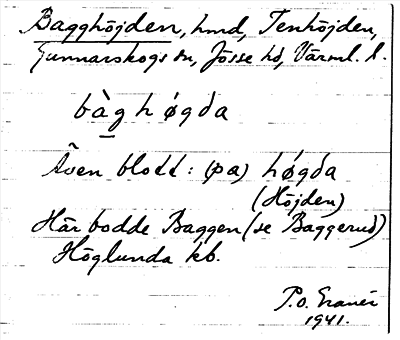 Bagghöjden, hmd, Tenhöjden,
Gunnarskogs sn, Jösse hd, Värml. l.
bàg h øgda
Även blott: (pa) høgda
(Höjden)
Här bodde Baggen (se Baggerud)
Höglunda kb.
P.O.
1941.